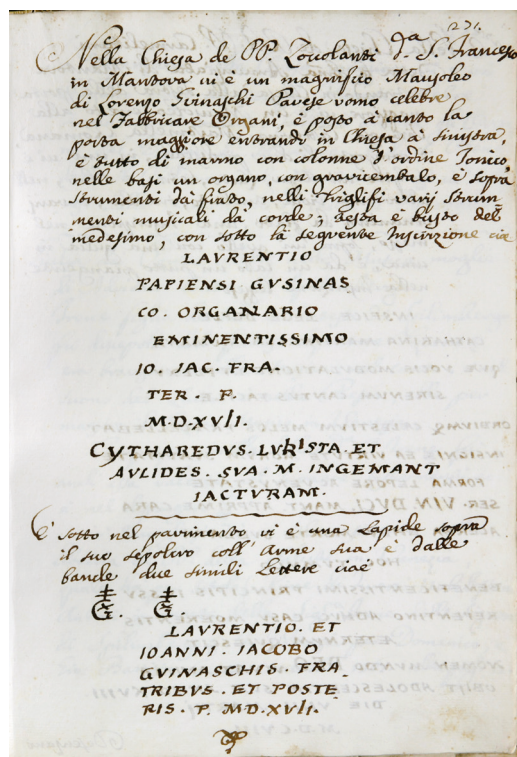 271.
Nella Chiesa de PP. Zoccolanti d.ta S. Francesco
in Mantova vi è un magnifico Mausoleo
di Lorenzo Gvinaschi Pavese vomo celebre
nel Fabbricare Organi, è posto à canto la
porta maggiore entrando in Chiesa à sinistra,
è tutto di marmo con colonne d'ordine Ionico,
nelle basi un organo, con gravicembalo, è sopra
strumenti dai fiato, nelli triglifi varij strum
menti musicali da corde; testa è busto del
medesimo, con sotto la segvente Inscrizione cioè
LAVRENTIO
PAPIENSI GVSINAS
CO. ORGANARIO
EMINENTISSIMO
IO. IAC. FRA.
TER. P.
M.D.XVII.
CYTHAREDVS. LVRISTA ET
AVLIDES. SVA. M. INGEMANT
IACTVRAM.
E' sotto nel pavimento vi è una Lapide sopra
il suo sepolcro coll' Arme sua è dalle
bande due simili Lettere cioè
G. G.
LAVRENTIO. ET
IOANNI. IACOBO
GVINASCHIS. FRA
TRIBVS. ET POSTE
RIS. P. M.D.XVII.